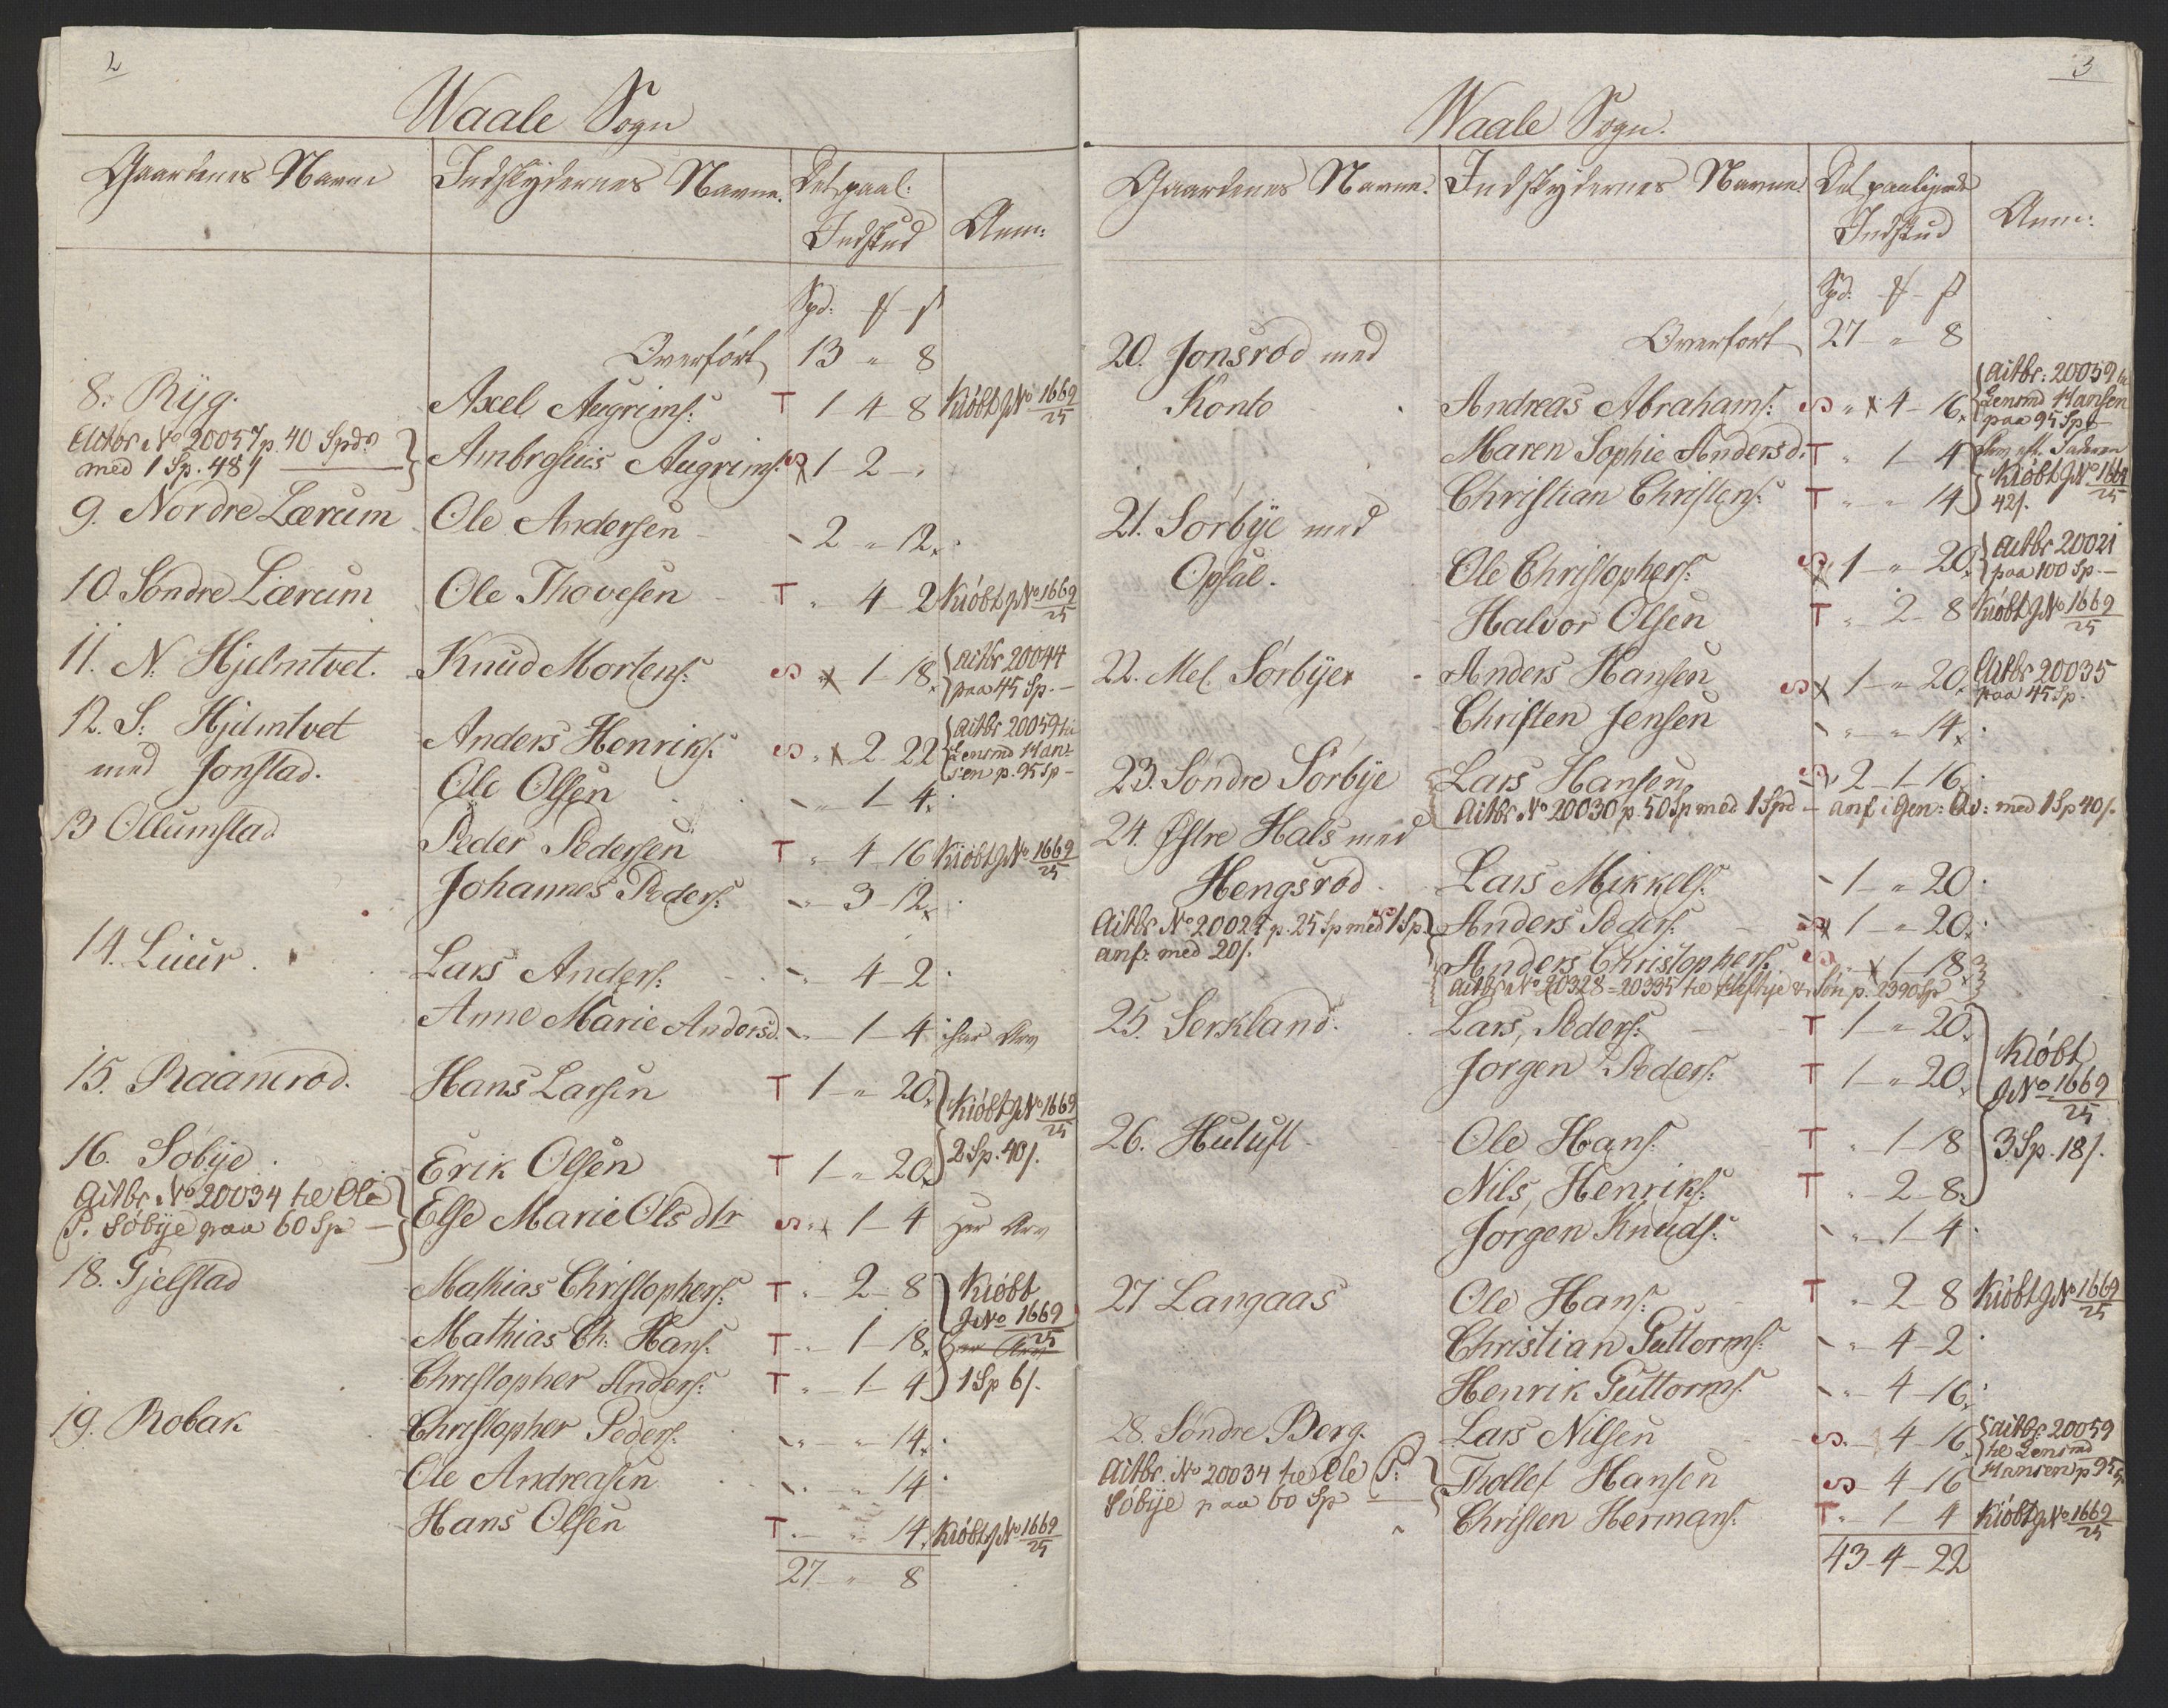 2
Waale Sogn
Gaardenes Navne Indskydernes Navne. Det paal: Indskud Anm:
Spd: ß
Overført 13 " 8
8. Ryg. Axel Augrims: T 1 4 8 Kiøbt JNo 1669/25
Actbr No 20057 p. 40 Spd
med 1 Sp. 48 ß Ambrosius Augrims: S x 1 2 "
9. Nordre Lærum Ole Andersen 2 " 12
10 Søndre Lærum Ole Thovesen T " 4 2 Kiøbt JNo 1669/25
11. N: Hjelmtvet. Knud Mortens: S " x 1 18 Actbr 20044
paa 45 Sp. —
12. S: Hjelmtvet Anders Henriks: S " x 2 22 Actbr 20059 til
Lensmd Han-
sen p. 95 Sp —
med Jonstad. Ole Olsen " 1 4
13 Ollumstad Peder Pedersen T " 4 16 Kiøbt JNo 1669/25
Johannes Peders: " 3 12
14. Liuur. Lars Anders: " 4 2
Anne Marie Andersd. " 1 4 har Arv
15. Raamrød. Hans Larsen T 1 " 20 Kiøbt JNo 1669/25
16. Søbye Erik Olsen T 1 " 20 2 Sp. 40 ß.
Actbr No 20034 til Ole
P. Søbye paa 60 Sp — Else Marie Ols dtr S " x 1 4 har Arv
18. Gjelstad Mathias Christophers: T " 2 8 Kiøbt
JNo 1669/25
Mathias Ch: Hans: T " 1 18
Christopher Anders: T " 1 4 1 Sp 6 ß.
19. Robak Christopher Peders: " " 14
Ole Andreasen " " 14
Hans Olsen T " " 14 Kiøbt JNo 1669/25
27 " 8
3
Waale Sogn.
Gaardenes Navne. Indskydernes Navne Det paaligende Indskud Anm:
Spd: ß
Overført 27 " 8
20. Jonsrød med
Konto Andreas Abrahams: S " x 4 16 Actbr: 20059 til
Lensmd Hansen
paa 95 Sp —
Maren Sophie Andersd. T " 1 4
Christian Christens: T " " 14 Kiøbt JNo 1669/25
42 ß.
21. Sørbye med
Opsal. Ole Christophers: S x 1 " 20 Actbr 20021
paa 100 Sp. —
Halvor Olsen T " 2 8 Kiøbt JNo 1669/25
22. Mel. Sørbye Anders Hansen S x 1 " 20 Actbr 20035
paa 45 Sp.
Christen Jensen " " 14
23. Søndre Sørbye Lars Hansen S 2 1 16
Actbr No 20030 p. 50 Sp med 1 Spd — anf i Gen: Qv: med 1 Sp 40 ß.
24. Østre Hals med
Hengsrød Lars Mikkels: 1 " 20
Actbr No 20024 p. 25 Sp med 1 Sp.
anf: med 20 ß. Anders Peders: S x 1 " 20
Anders Christophers: S " x 1 18
Actbr No 20328 = 20335 til p. 2390 Sp
25. Serkland. Lars Peders: T 1 " 20 Kiøbt
JNo 1669/25
Jørgen Peders: T 1 " 20
26. Huluft Ole Hans: T " 1 18 3 Sp. 18 ß.
Nils Henriks: T " 2 8
Jørgen Knuds: " 1 4
27 Langaas Ole Hans: T " 2 8 Kiøbt JNo 1669/25
Christian Guttorms: " 4 2
Henrik Guttorms: " 4 16
28. Søndre Berg. Lars Nilsen S " 4 16 Actbr: 20059
til Lensmd
Hansen p 95 Sp
Actbr. No 20034 til Ole P:
Søbye paa 60 Sp — Thollef Hansen S 4 16
Christen Hermans: T " 1 4 Kiøbt JNo 1669/25
43 4 22